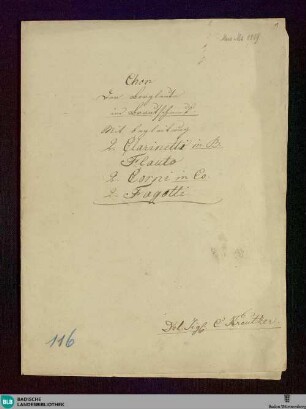 Mus. Hs. 1119
Chor
Der Bergleute
Mit Begleitung
2. Clarinetti in B.
Flauto
2. Corni in Es.
2. Fagotti.
Del Sigl. C. Kreutzer.
116
BLB
BADISCHE
LANDESBIBLIOTHEK
Baden-Württemberg